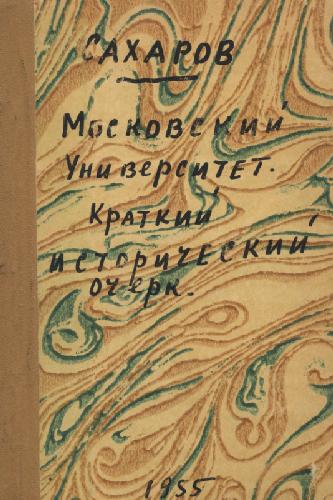 САХАРОВ
Московский
Университет.
Краткий
исторический
очерк.
1955